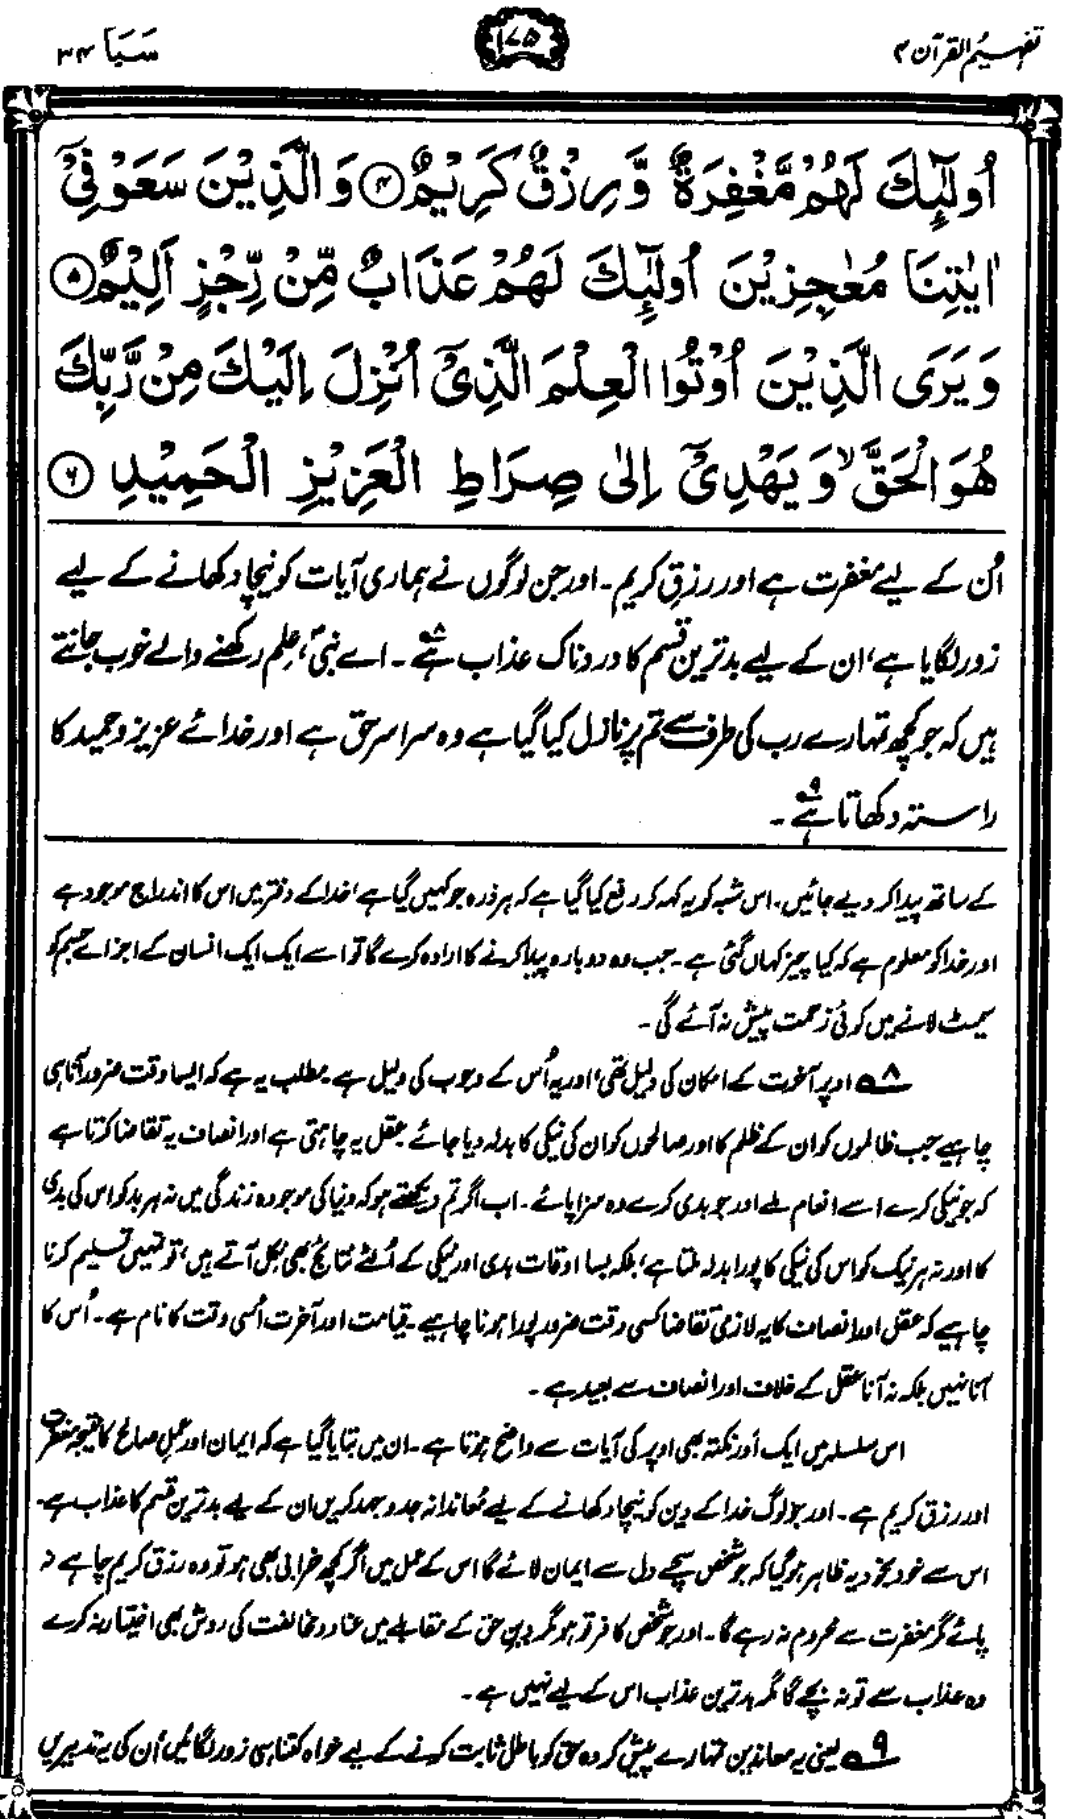 تفہیم القرآن ۴
۱۷۵
سَبَا ۳۴
اُولٰٓئِكَ لَهُمْ مَّغْفِرَةٌ وَّرِزْقٌ كَرِيْمٌ ﴿۴﴾ وَالَّذِيْنَ سَعَوْ فِيْٓ
اٰيٰتِنَا مُعٰجِزِيْنَ اُولٰٓئِكَ لَهُمْ عَذَابٌ مِّنْ رِّجْزٍ اَلِيْمٌ ﴿۵﴾
وَيَرَى الَّذِيْنَ اُوْتُوا الْعِلْمَ الَّذِيْٓ اُنْزِلَ اِلَيْكَ مِنْ رَّبِّكَ
هُوَ الْحَقَّ ۙ وَيَهْدِيْٓ اِلٰى صِرَاطِ الْعَزِيْزِ الْحَمِيْدِ ﴿۶﴾
اُن کے لیے مغفرت ہے اور رزقِ کریم۔ اور جن لوگوں نے ہماری آیات کو نیچا دکھانے کے لیے
زور لگایا ہے، ان کے لیے بدترین قسم کا دردناک عذاب ہے۸۔ اے نبیؐ، علم رکھنے والے خوب جانتے
ہیں کہ جو کچھ تمہارے رب کی طرف سے تم پر نازل کیا گیا ہے وہ سراسر حق ہے اور خدائے عزیز و حمید کا
راستہ دکھاتا ہے۹۔
کے ساتھ پیدا کر دیے جائیں۔ اس شبہ کو یہ کہہ کر رفع کیا گیا ہے کہ ہر ذرہ جو کہیں گیا ہے، خدا کے دفتر میں اس کا اندراج موجود ہے
اور خدا کو معلوم ہے کہ کیا چیز کہاں گئی ہے۔ جب وہ دوبارہ پیدا کرنے کا ارادہ کرے گا تو اسے ایک ایک انسان کے اجزائے جسم کو
سمیٹ لانے میں کوئی زحمت پیش نہ آئے گی۔
۸ اوپر آخرت کے امکان کی دلیل تھی، اور یہ اُس کے وجوب کی دلیل ہے۔ مطلب یہ ہے کہ ایسا وقت ضرور آنا ہی
چاہیے جب ظالموں کو ان کے ظلم کا اور صالحوں کو ان کی نیکی کا بدلہ دیا جائے۔ عقل یہ چاہتی ہے اور انصاف یہ تقاضا کرتا ہے
کہ جو نیکی کرے اسے انعام ملے اور جو بدی کرے وہ سزا پائے۔ اب اگر تم دیکھتے ہو کہ دنیا کی موجودہ زندگی میں نہ ہر بد کو اس کی بدی
کا اور نہ ہر نیک کو اس کی نیکی کا پورا بدلہ ملتا ہے، بلکہ بسا اوقات بدی اور نیکی کے اُلٹے نتائج بھی نکل آتے ہیں، تو تمہیں تسلیم کرنا
چاہیے کہ عقل اور انصاف کا یہ لازمی تقاضا کسی وقت ضرور پورا ہونا چاہیے۔ قیامت اور آخرت اُسی وقت کا نام ہے۔ اُس کا
آنا نہیں بلکہ نہ آنا عقل کے خلاف اور انصاف سے بعید ہے۔
اس سلسلہ میں ایک اَور نکتہ بھی اوپر کی آیات سے واضح ہوتا ہے۔ ان میں بتایا گیا ہے کہ ایمان اور عمل صالح کا نتیجہ مغفرت
اور رزق کریم ہے۔ اور جو لوگ خدا کے دین کو نیچا دکھانے کے لیے مُعاندانہ جدوجہد کریں ان کے لیے بدترین قسم کا عذاب ہے۔
اس سے خود بخود یہ ظاہر ہو گیا کہ جو شخص سچے دل سے ایمان لائے گا اس کے عمل میں اگر کچھ خرابی بھی ہو تو وہ رزق کریم چاہے نہ
پائے مگر مغفرت سے محروم نہ رہے گا۔ اور جو شخص کافر تو ہو مگر دینِ حق کے مقابلے میں عناد و مخالفت کی روش بھی اختیار نہ کرے
وہ عذاب سے تو نہ بچے گا مگر بدترین عذاب اس کے لیے نہیں ہے۔
۹ یعنی یہ معاندین تمہارے پیش کردہ حق کو باطل ثابت کرنے کے لیے خواہ کتنا ہی زور لگائیں اُن کی یہ تدبیریں